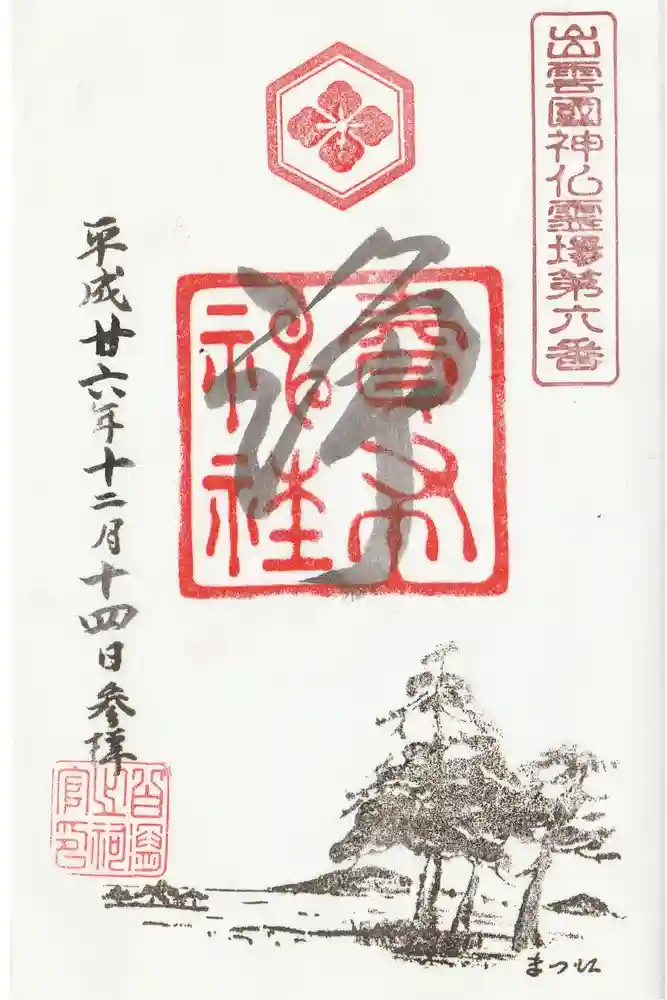 出雲國神仏霊場第六番
浄
賣布
神社
平成廿六年十二月十四日参拝
まつ江